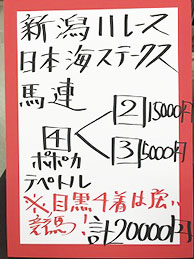 新潟11レース
日本海ステークス
馬連
2 15000円
4 < 3 5000円
ポポカ
テペトル
※目黒4着は強い
競馬!
計20000円